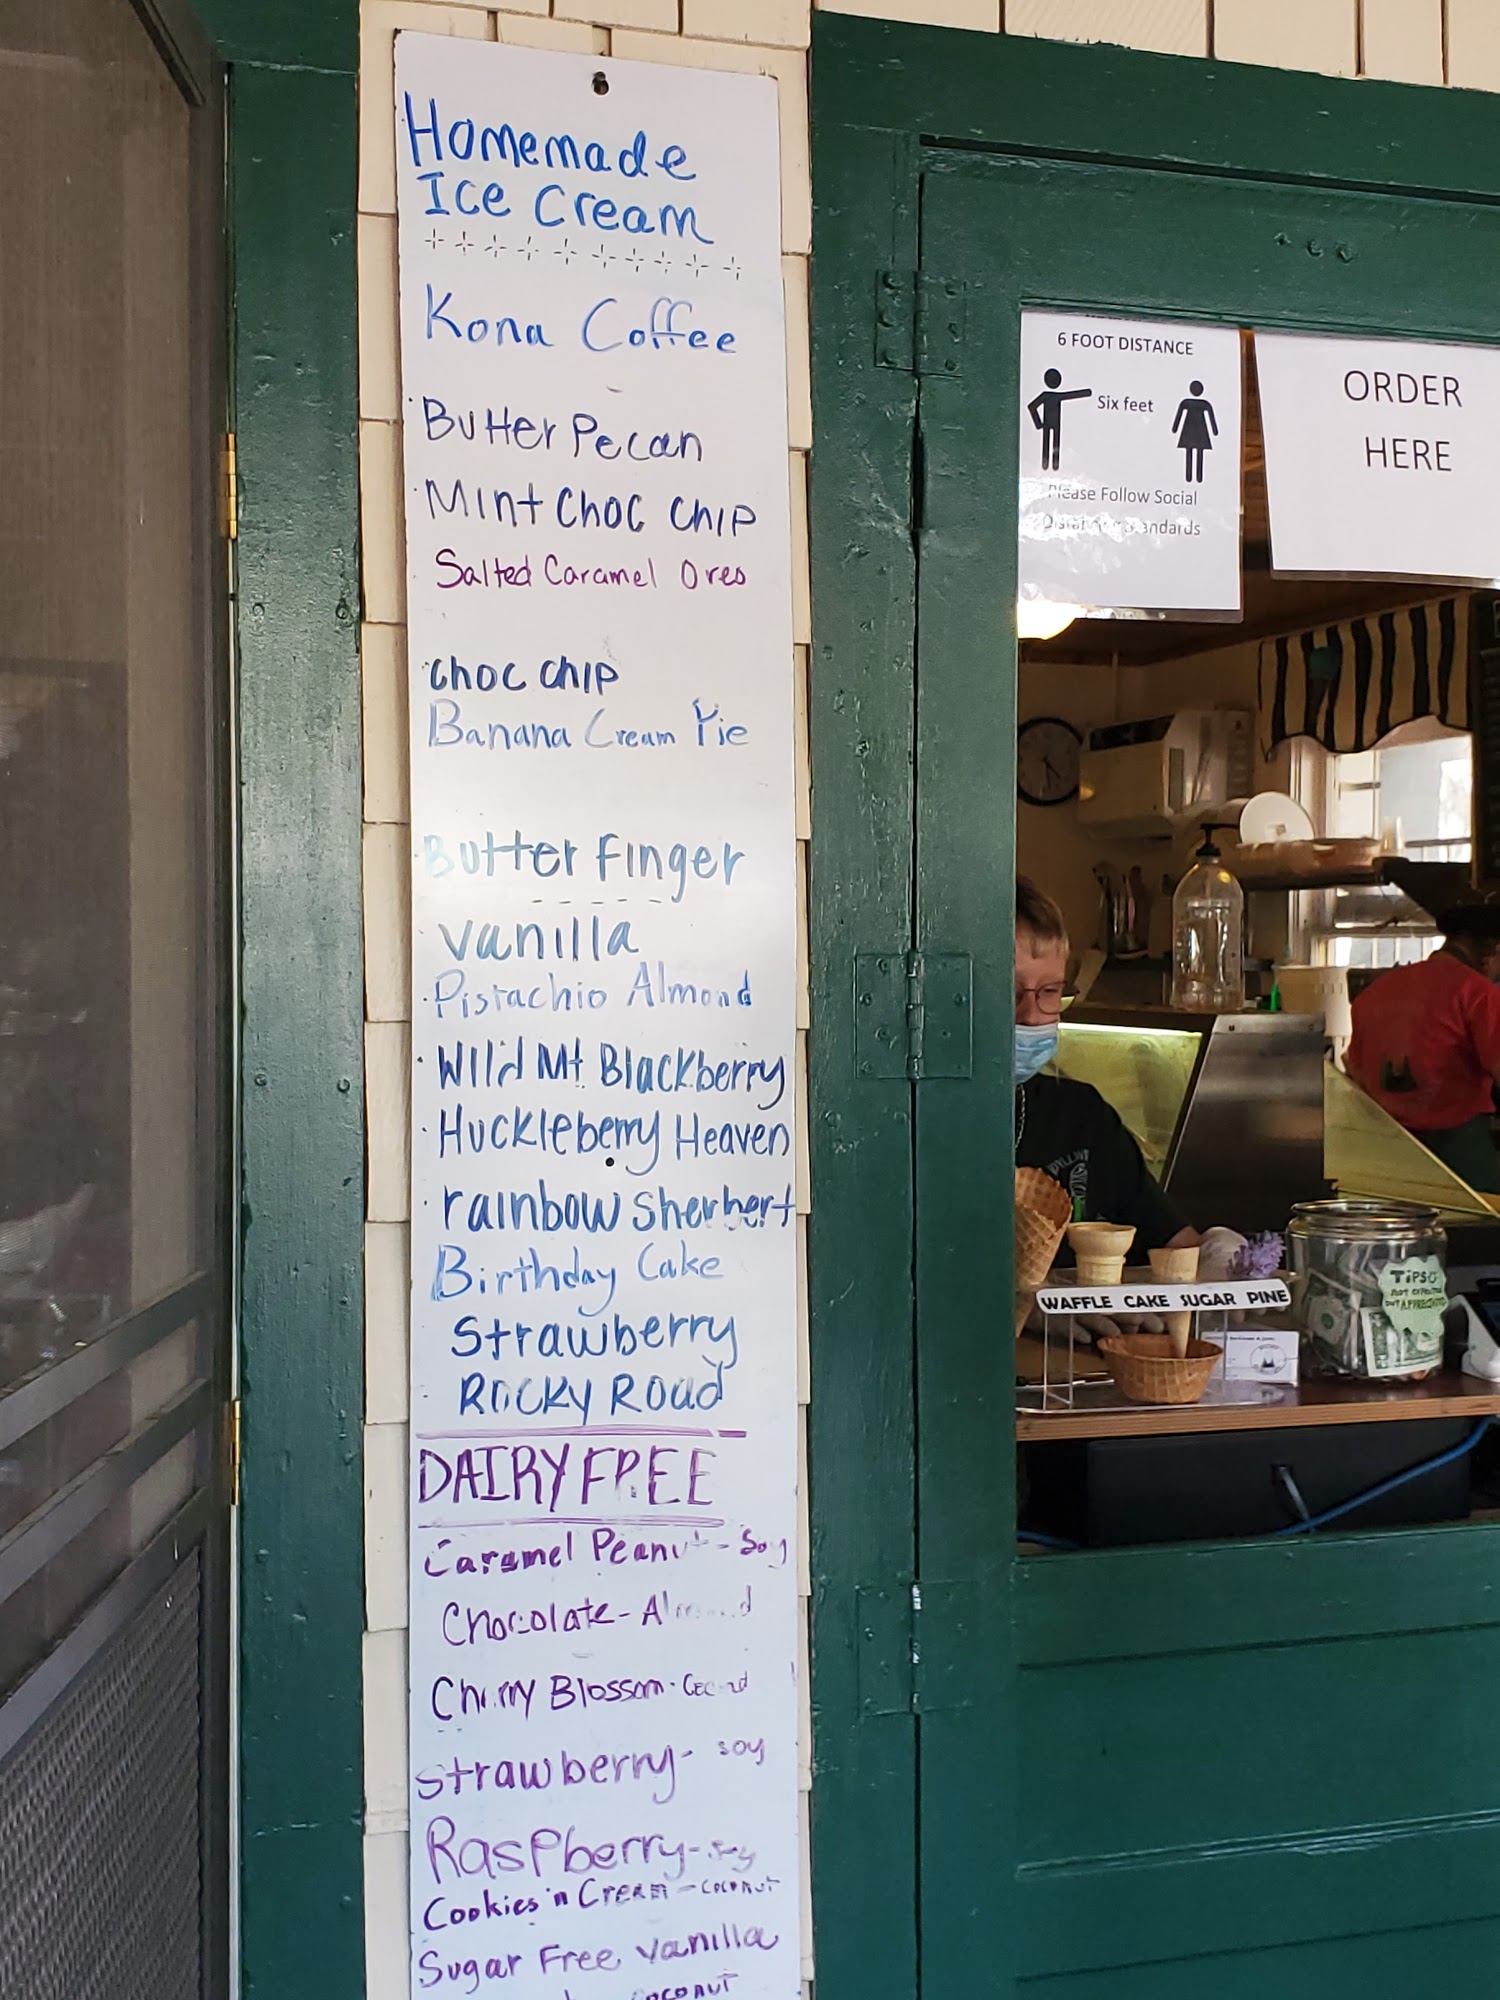 Homemade
Ice Cream
Kona Coffee
Butter Pecan
Mint Choc Chip
Salted Caramel Oreo
Choc Chip
Banana Cream Pie
Butter Finger
Vanilla
Pistachio Almond
Wild Mt Blackberry
Huckleberry Heaven
rainbow Sherbert
Birthday Cake
Strawberry
Rocky Road
DAIRY FREE
Caramel Peanut - Soy
Chocolate - Almond
Cherry Blossom -
Strawberry - soy
Raspberry - soy
Cookies 'n Cream - coconut
Sugar Free Vanilla
coconut
6 FOOT DISTANCE
Six feet
Please Follow Social
Distancing Standards
ORDER
HERE
WAFFLE CAKE SUGAR PINE
TIPS
NOT EXPECTED
BUT APPRECIATED